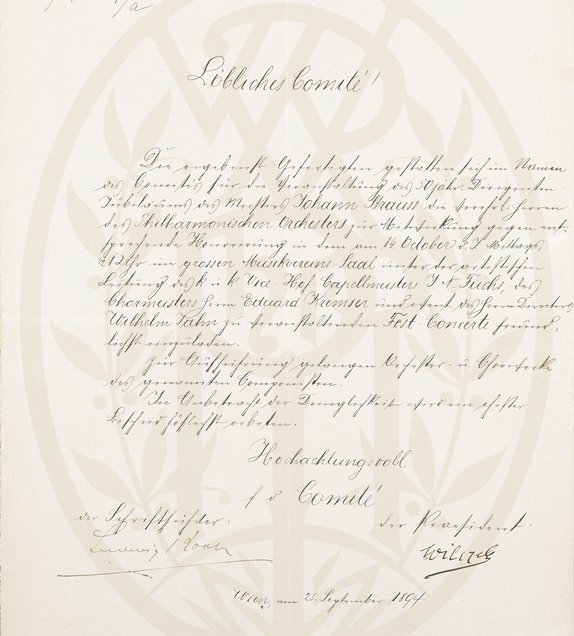 Löbliches Comité!
Die ergebenst Gefertigten gestatten sich im Namen
des Comités für die Veranstaltung des 50 jähr. Dirigenten
Jubiläums des Meisters Johann Strauss, die verehrl. Herren
des Philharmonischen Orchesters zur Mitwirkung gegen ent-
sprechende Honorirung in dem am 14 October d. J. Mittags
12 Uhr im grossen Musikvereins-Saal unter der artistischen
Leitung des k. u. k. Vice-Hof-Capellmeisters J. N. Fuchs, des
Chormeisters Herrn Eduard Kremser und event. des Herrn Directors
Wilhelm Jahn zu veranstaltenden Fest-Concerte freund-
lichst einzuladen.
Zur Aufführung gelangen Orchester- u. Chorwerke
des genannten Componisten.
In Anbetracht der Dringlichkeit wird um ehesten
Bescheid höflichst gebeten.
Hochachtungsvoll
f. d. Comité
der Schriftführer: der Praesident:
Ludwig Koch Wilczek
Wien, am 25. September 1894